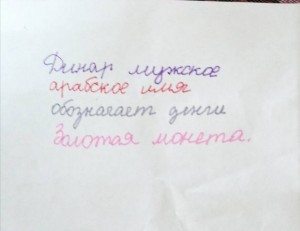 Динар мужское
арабское имя
обозначает деньги
Золотая монета.